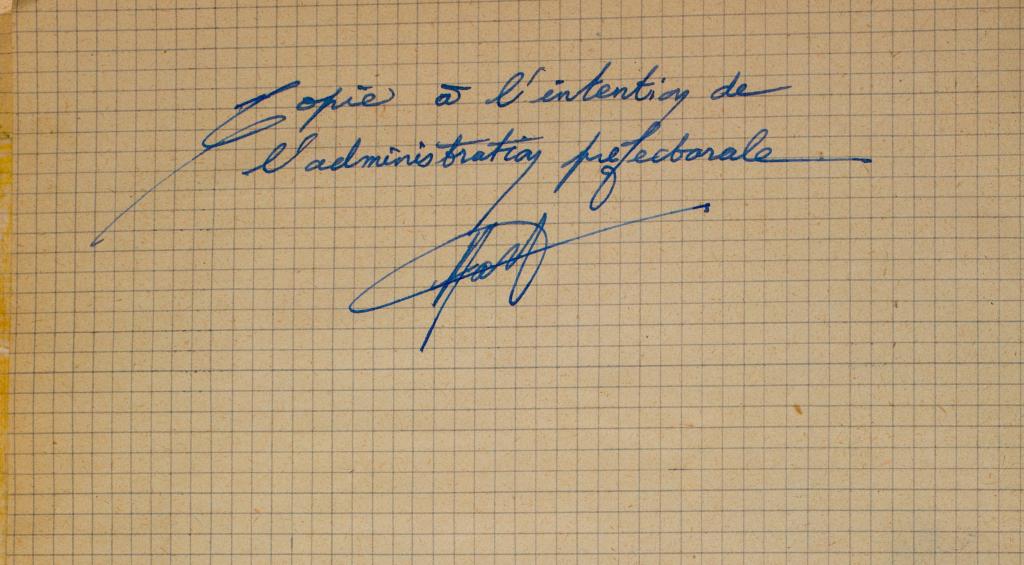 Copie à l'intention de
l'administration préfectorale